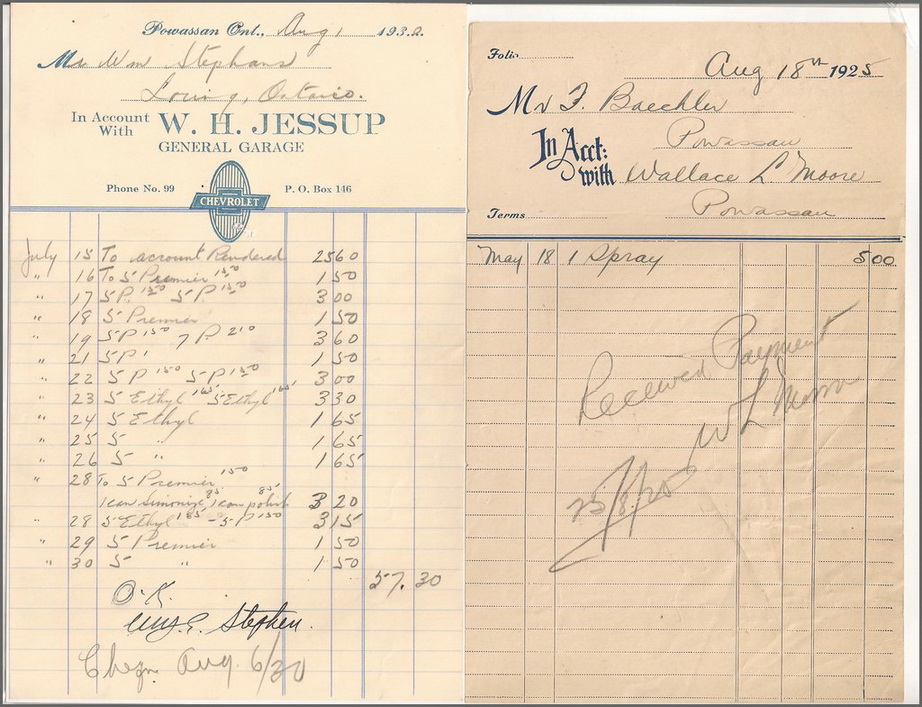 Powassan Ont., Aug 1 1932.
Mr Wm Stephans
Loring, Ontario.
In Account With W. H. JESSUP
GENERAL GARAGE
Phone No. 99 P. O. Box 146
CHEVROLET
July 15 To account Rendered 25 60
" 16 To 5 Premier 1 50 1 50
" 17 5 P. 1 50 5 P 1 50 3 00
" 18 5 Premier 1 50
" 19 5 P 1 50 7 P. 2 10 3 60
" 21 5 P 1 50
" 22 5 P 1 50 5 P 1 50 3 00
" 23 5 Ethyl 1 65 5 Ethyl 1 65 3 30
" 24 5 Ethyl 1 65
" 25 5 " 1 65
" 26 5 " 1 65
" 28 To 5 Premier 1 50
1 can Simonize 85 1 can polish 85 3 20
" 28 5 Ethyl 1 65 - 5 P 1 50 3 15
" 29 5 Premier 1 50
" 30 5 " 1 50
57.30
O.K.
Stephen.
Aug. 6/30
Folio
Aug 18th 1925
Mr F. Baechler
Powassan
In Acct: with Wallace L. Moore
Terms Powassan
May 18 1 Spray 5 00
Received Payment
W L Moore